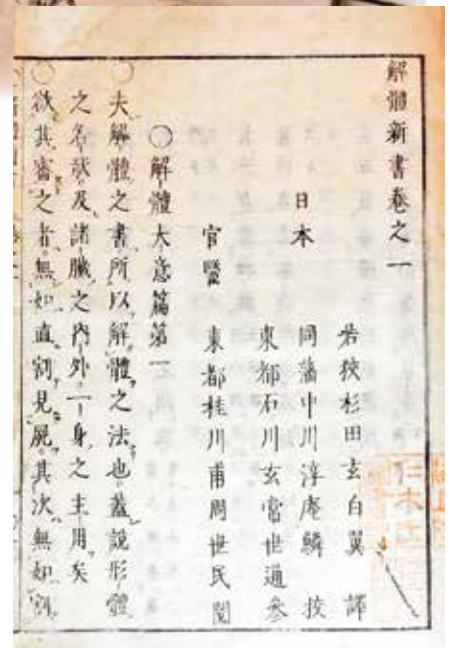 解體新書卷之一
若狹杉田玄白翼 譯
日本
同藩中川淳庵鱗 校
東都石川玄常世通參
官醫
東都桂川甫周世民閱
〇解體大意篇第一
〇夫解體之書所以解體之法也蓋說形體
之名狀及諸臟之內外一身之主用矣
〇欲其審之者無如直割見屍其次無如割